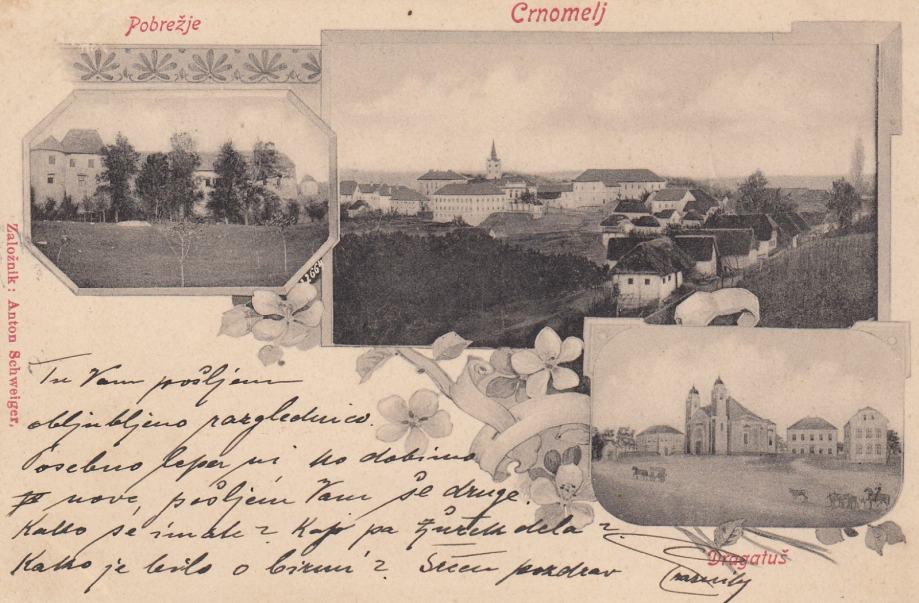 Pobrežje
Crnomelj
Založnik: Anton Schweiger.
Tu Vam pošljem
obljubljeno razglednico.
Posebno lepa ni ko dobimo
nove, pošljem Vam še druge.
Kako se imate? Kaj pa Žurek dela?
Kako je bilo o birmi? Srčen pozdrav
Dragatuš